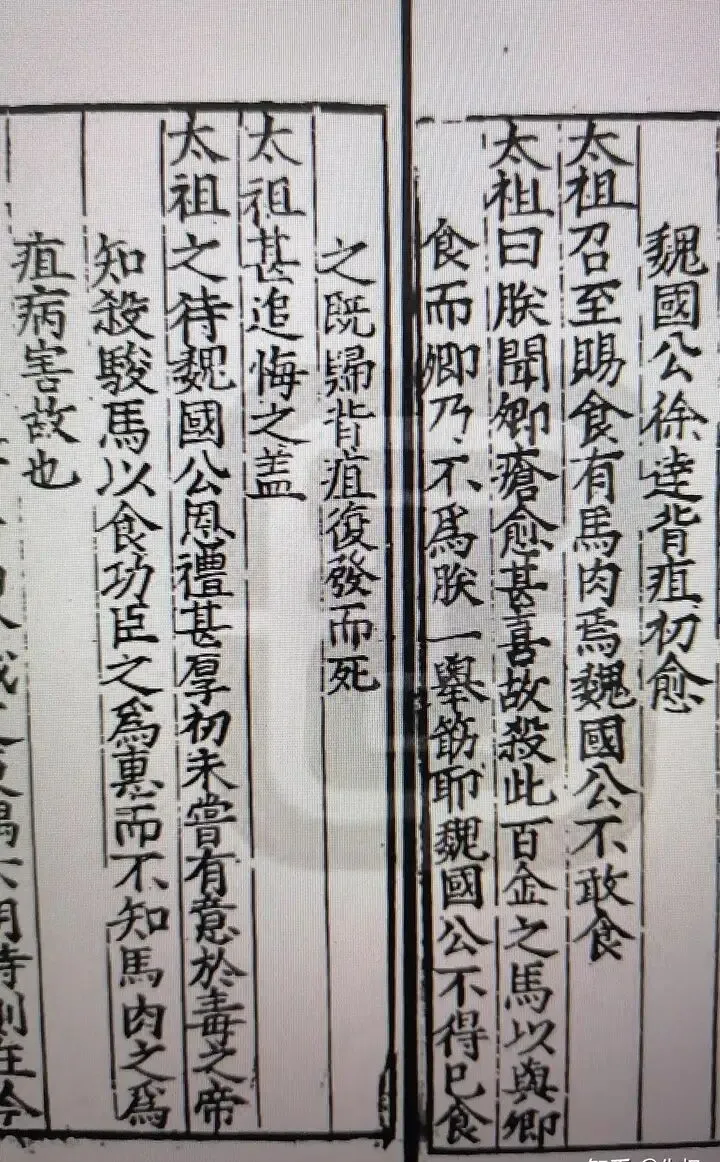 魏國公徐達背疽初愈
太祖召至賜食有馬肉焉魏國公不敢食
太祖曰朕聞卿瘡愈甚喜故殺此百金之馬以與卿
食而卿乃不爲朕一舉筯耶魏國公不得已食
之旣歸背疽復發而死
太祖甚追悔之盖
太祖之待魏國公恩禮甚厚初未嘗有意於毒之帝
知殺駿馬以食功臣之爲惠而不知馬肉之爲
疽病害故也